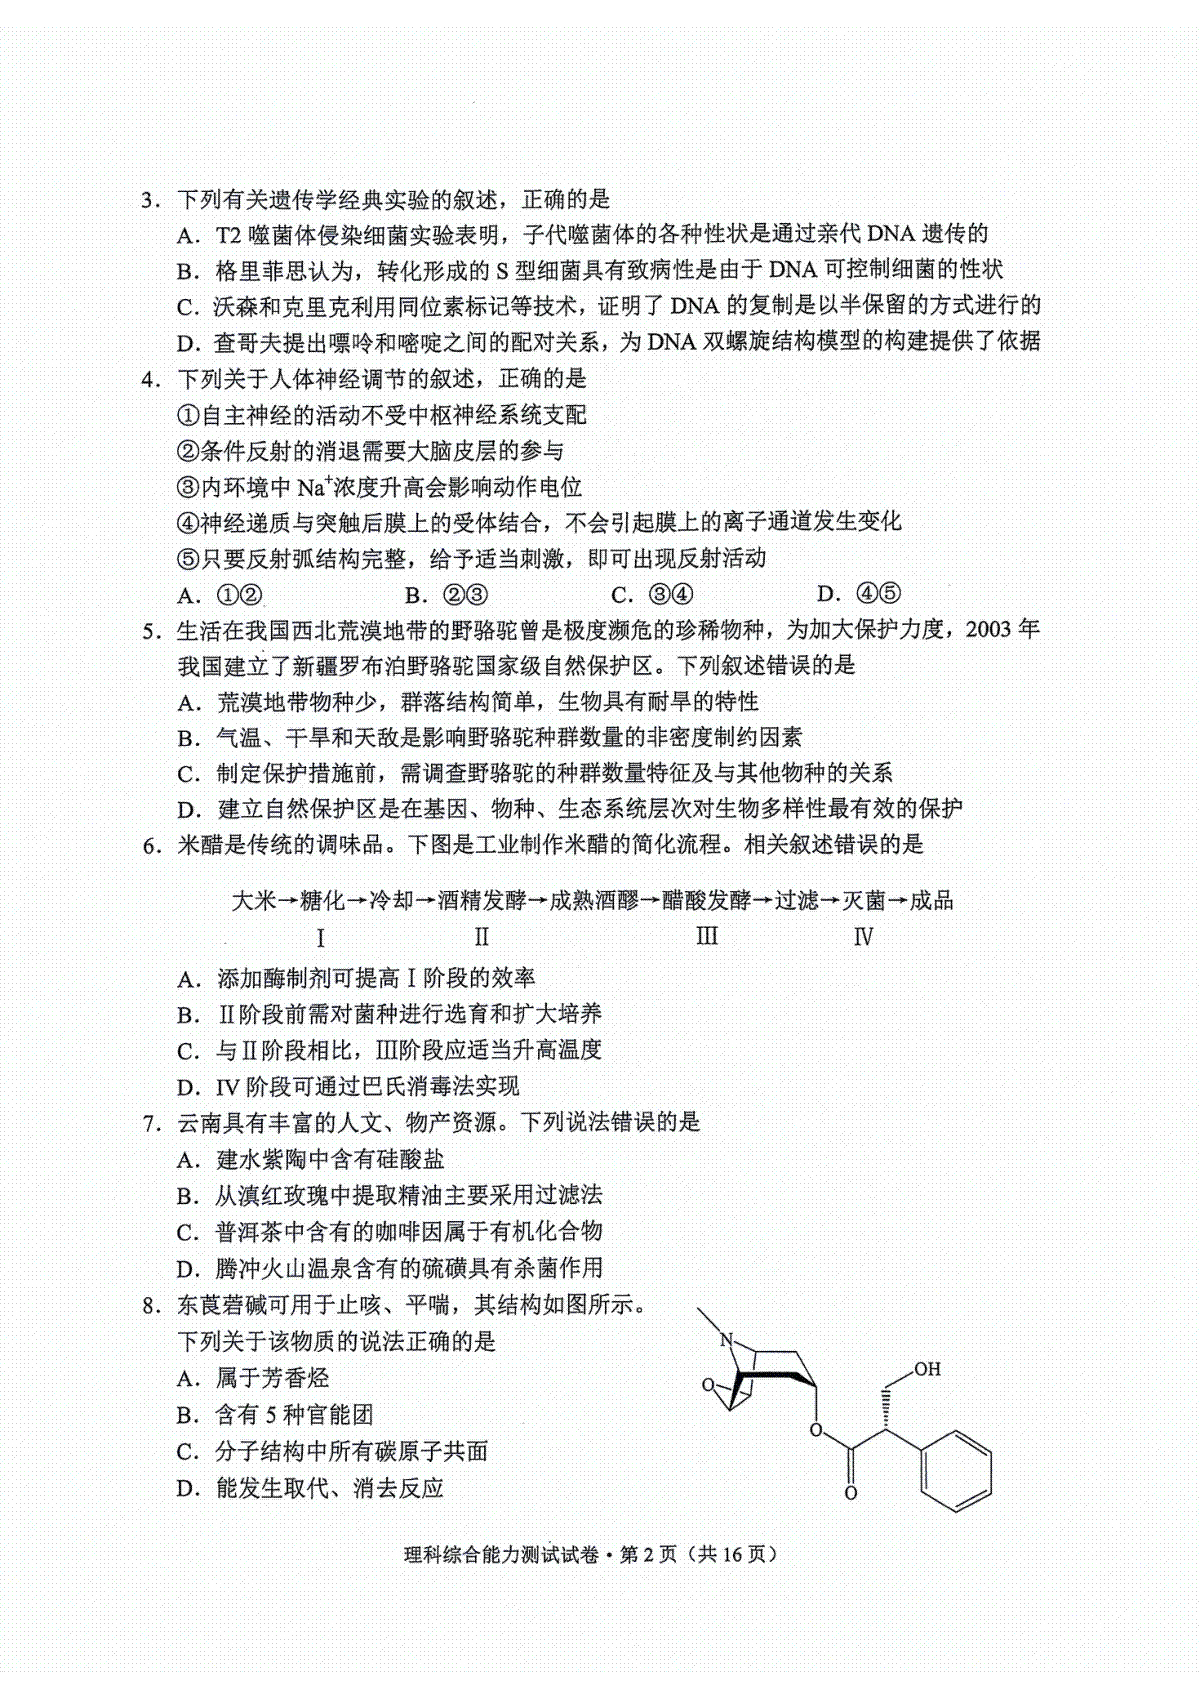 3. 下列有关遗传学经典实验的叙述，正确的是
A. T2 噬菌体侵染细菌实验表明，子代噬菌体的各种性状是通过亲代 DNA 遗传的
B. 格里菲思认为，转化形成的 S 型细菌具有致病性是由于 DNA 可控制细菌的性状
C. 沃森和克里克利用同位素标记等技术，证明了 DNA 的复制是以半保留的方式进行的
D. 查哥夫提出嘌呤和嘧啶之间的配对关系，为 DNA 双螺旋结构模型的构建提供了依据
4. 下列关于人体神经调节的叙述，正确的是
①自主神经的活动不受中枢神经系统支配
②条件反射的消退需要大脑皮层的参与
③内环境中 Na⁺浓度升高会影响动作电位
④神经递质与突触后膜上的受体结合，不会引起膜上的离子通道发生变化
⑤只要反射弧结构完整，给予适当刺激，即可出现反射活动
A. ①② B. ②③ C. ③④ D. ④⑤
5. 生活在我国西北荒漠地带的野骆驼曾是极度濒危的珍稀物种，为加大保护力度，2003 年
我国建立了新疆罗布泊野骆驼国家级自然保护区。下列叙述错误的是
A. 荒漠地带物种少，群落结构简单，生物具有耐旱的特性
B. 气温、干旱和天敌是影响野骆驼种群数量的非密度制约因素
C. 制定保护措施前，需调查野骆驼的种群数量特征及与其他物种的关系
D. 建立自然保护区是在基因、物种、生态系统层次对生物多样性最有效的保护
6. 米醋是传统的调味品。下图是工业制作米醋的简化流程。相关叙述错误的是
大米→糖化→冷却→酒精发酵→成熟酒醪→醋酸发酵→过滤→灭菌→成品
Ⅰ Ⅱ Ⅲ Ⅳ
A. 添加酶制剂可提高Ⅰ阶段的效率
B. Ⅱ阶段前需对菌种进行选育和扩大培养
C. 与Ⅱ阶段相比，Ⅲ阶段应适当升高温度
D. Ⅳ 阶段可通过巴氏消毒法实现
7. 云南具有丰富的人文、物产资源。下列说法错误的是
A. 建水紫陶中含有硅酸盐
B. 从滇红玫瑰中提取精油主要采用过滤法
C. 普洱茶中含有的咖啡因属于有机化合物
D. 腾冲火山温泉含有的硫磺具有杀菌作用
8. 东莨菪碱可用于止咳、平喘，其结构如图所示。
下列关于该物质的说法正确的是
A. 属于芳香烃
B. 含有 5 种官能团
C. 分子结构中所有碳原子共面
D. 能发生取代、消去反应
N
O
OH
O
O
理科综合能力测试试卷·第 2 页（共 16 页）